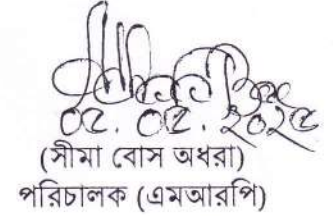 ০৫. ০৫. ২০২৫
(সীমা বোস অধরা)
পরিচালক (এমআরপি)